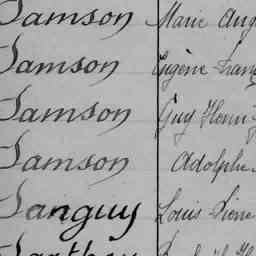 Samson Marie Aug
Samson Eugène Franç
Samson Guy Henri
Samson Adolphe
Sanguy Louis Pierre